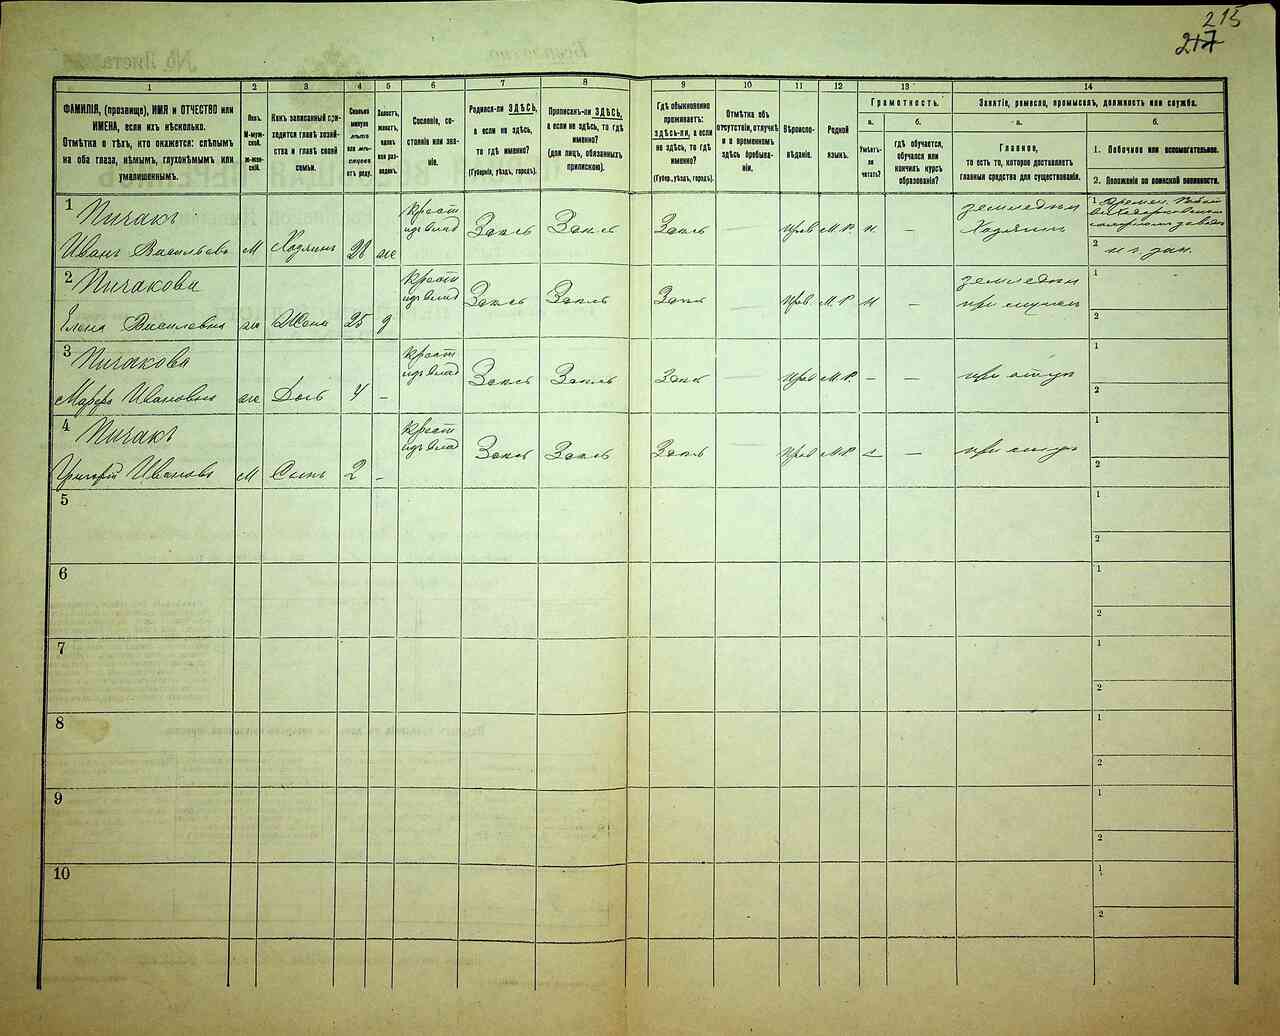 215
217
1
2
3
4
5
6
7
8
9
10
11
12
13
14
ФАМИЛІЯ, (прозвище), ИМЯ и ОТЧЕСТВО или
ИМЕНА, если ихъ нѣсколько.
Отмѣтка о тѣхъ, кто окажется: слѣпымъ
на оба глаза, нѣмымъ, глухонѣмымъ или
умалишеннымъ.
Полъ.
М-муж-
ской.
ж-жен-
скій.
Какъ записанный при-
ходится главѣ хозяй-
ства и главѣ своей
семьи.
Сколько
минуло
лѣтъ
или мѣ-
сяцевъ
отъ роду.
Холостъ,
женатъ,
вдовъ
или раз-
веденъ.
Сословіе, со-
стояніе или зва-
ніе.
Родился-ли ЗДѢСЬ,
а если не здѣсь,
то гдѣ именно?
(Губернія, уѣздъ, городъ).
Приписанъ-ли ЗДѢСЬ,
а если не здѣсь, то гдѣ
именно?
(для лицъ, обязанныхъ
припискою).
Гдѣ обыкновенно
проживаетъ:
здѣсь-ли, а если
не здѣсь, то гдѣ
именно?
(Губер.,уѣздъ, городъ).
Отмѣтка объ
отсутствіи, отлучкѣ
и о временномъ
здѣсь пребыва-
ніи.
Вѣроиспо-
вѣданіе.
Родной
языкъ.
Грамотность.
а.
Умѣетъ-
ли
читать?
б.
Гдѣ обучается,
обучался или
кончилъ курсъ
образованія?
Занятіе, ремесло, промыселъ, должность или служба.
а.
Главное,
то есть то, которое доставляетъ
главныя средства для существованія.
б.
1. Побочное или вспомогательное.
2. Положеніе по воинской повинности.
1 Пичакъ
Иванъ Васильевъ М Хозяинъ 28 же
Крест изъ влад Здесь Здесь Здесь — Прав М.Р. н. —
земледелец
Хозяинъ
1
2
2 Пичакова
Елена Василевна же Жена 25 з
Крест изъ влад Здесь Здесь Здесь — Прав М.Р. н —
земледелец
при мужѣ
1
2
3 Пичакова
Марфа Ивановна же Дочь 4 -
Крест изъ влад Здесь Здесь Здесь — Прав М.Р. — —
при отцѣ
1
2
4 Пичакъ
Григорій Ивановъ М Сынъ 2 -
Крест изъ влад Здесь Здесь Здесь — Прав М.Р. — —
при отцѣ
1
2
5
1
2
6
1
2
7
1
2
8
1
2
9
1
2
10
1
2